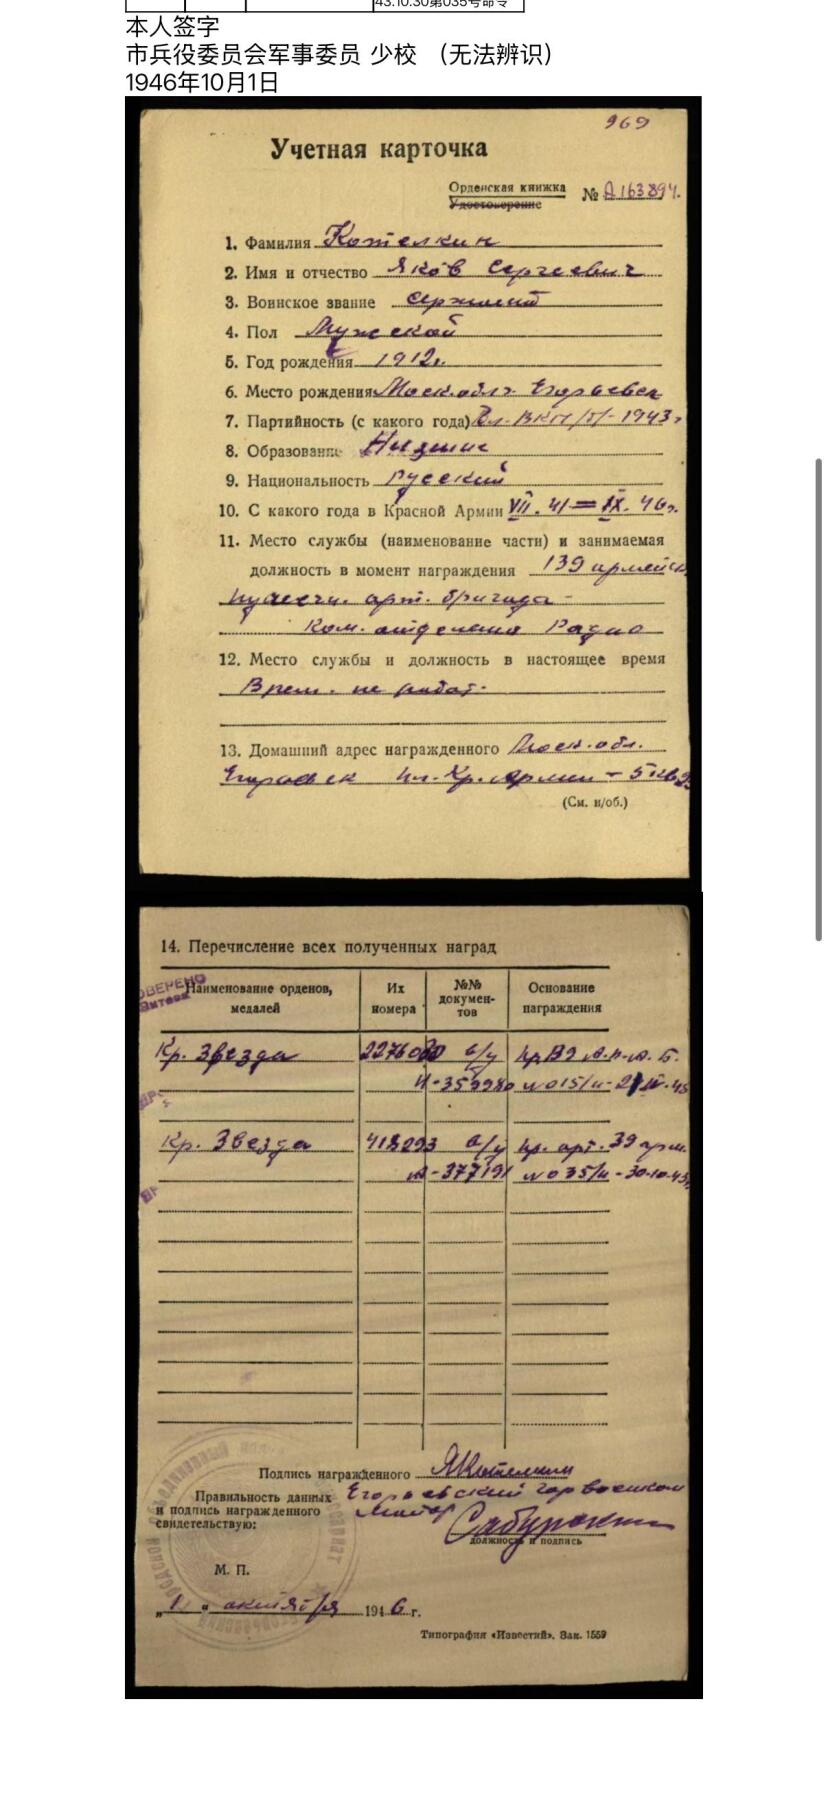 43.10.30第035号命令
本人签字
市兵役委员会军事委员 少校 （无法辨识）
1946年10月1日
969
Учетная карточка
Орденская книжка
Удостоверение
№ А163894.
1. Фамилия Котелкин
2. Имя и отчество Яков Сергеевич
3. Воинское звание сержант
4. Пол Мужской
5. Год рождения 1912г.
6. Место рождения Моск. обл. г. Егорьевск
7. Партийность (с какого года) Чл. ВКП/б/ - 1943г
8. Образование Низшее
9. Национальность Русский
10. С какого года в Красной Армии VII. 41 = IX. 46г.
11. Место службы (наименование части) и занимаемая
должность в момент награждения 139 армейск.
пушечн. арт. бригада -
Ком. отделения Радио
12. Место службы и должность в настоящее время
Врем. не работ.
13. Домашний адрес награжденного Моск. обл.
Егорьевск пл. Кр. Армии - 5 кв
(См. н/об.)
14. Перечисление всех полученных наград
ОВЕРЕНО
Наименование орденов, медалей
Их номера
№№ документов
Основание награждения
Кр. Звезда в/у
И-359980 №015/н-
Кр. Звезда 418293 в/у пр. арт. 39 арм.
-377191 №035/н - 30.10.43г
Подпись награжденного ЯКотелкин
Правильность данных
и подпись награжденного
свидетельствую:
Егорьевский горвоенком
Майор
должность и подпись
М. П.
„1“ октября 1946 г.
Типография «Известий». Зак. 1559